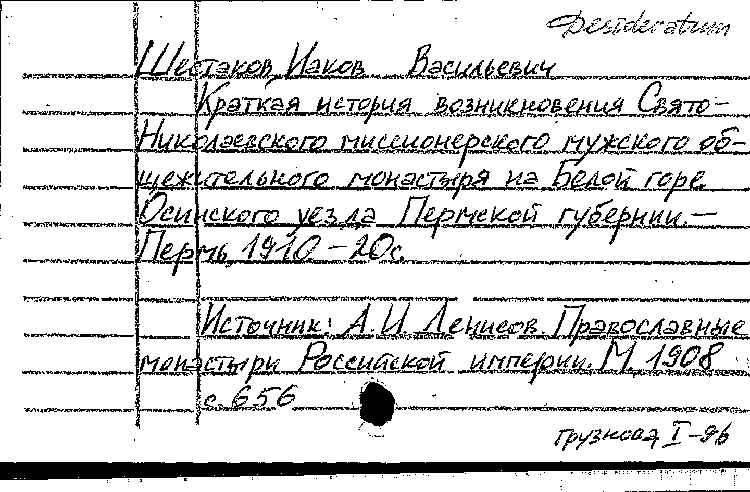 Desideratum
Шестаков, Иаков Васильевич
Краткая история возникновения Свято-
Николаевского миссионерского мужского об-
щежительного монастыря на Белой горе
Осинского уезда Пермской губернии.—
Пермь, 1910 - 20с.
Источник: А.И. Денисов. Православные
монастыри Российской империи. М, 1908
с. 656
Грузнова, I-96